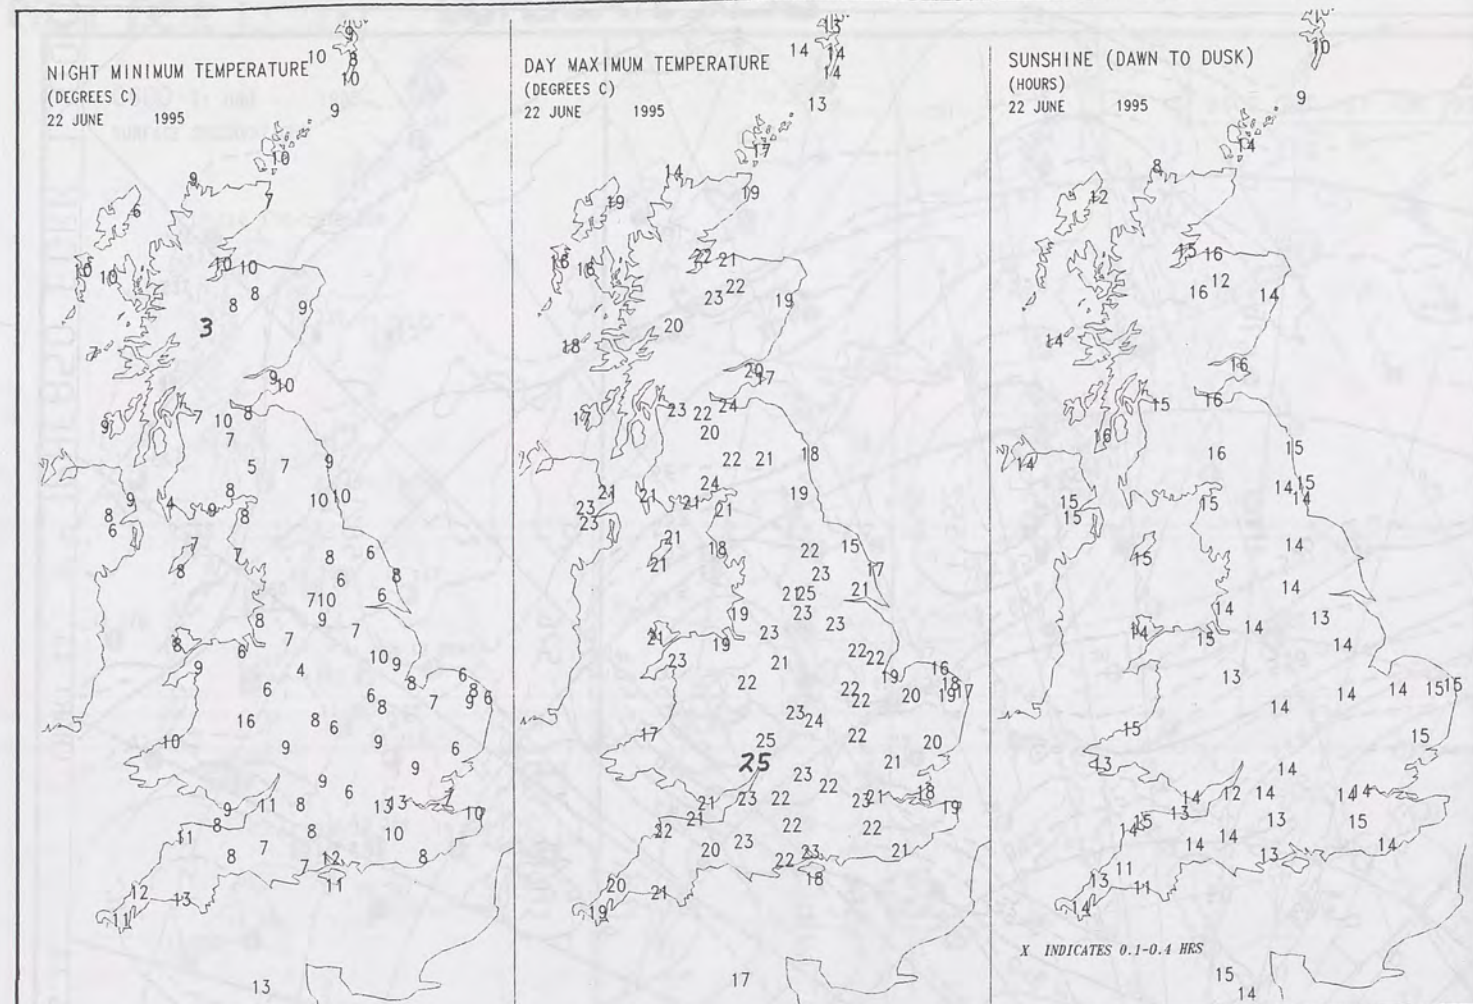 NIGHT MINIMUM TEMPERATURE
(DEGREES C)
22 JUNE 1995
9
10 8
10
9
10
9
7
6
10 10 10 10
8 8
9
3
7
9 10
9 7 10 8
7
5 7 9
8
9 4 9 8 10 10
8
6
7 7 8 6
8 8
6 6
7 10
8 9
8 6 7 7
9 4 10 9
6 8 6
6 8 7 9 8 6
16 8 6
10 9 9 6
9 9
9 11 8 6 13 13 7 10
11 8 8 10
8 7 7 12 8
11
12 13
11
13
DAY MAXIMUM TEMPERATURE
(DEGREES C)
22 JUNE 1995
13
14 14
14
13
17
14
19 19
16 16 22 21
23 22 19
20
18
20 17
17 23 22 24
20
22 21 18
24
21 21 21 19
23 21
23
21 18 22 15
21 23 17
21 25 21
19 23 23
21 19 23
23 21 22 22 16
22 22 22 19 20 18 17
19
23 24
17 25 22 20
25
23 22 21
21 23 22 23 21 18 19
22 21 22 22
20 23 22 23 21
18
20 21
19
17
SUNSHINE (DAWN TO DUSK)
(HOURS)
22 JUNE 1995
10
10
9
14
8
12
15 16
16 12 14
14
16
15 16
16
14 16 15
15 15 14 15 14
15
15 14
14
14 13
14 15 14 14
13 14 14 15 15
14
15 15
13 14
14 12 14 14 14
14 15 13 13 15
14 14 13 14
11
13 11
14
X INDICATES 0.1-0.4 HRS
15
14